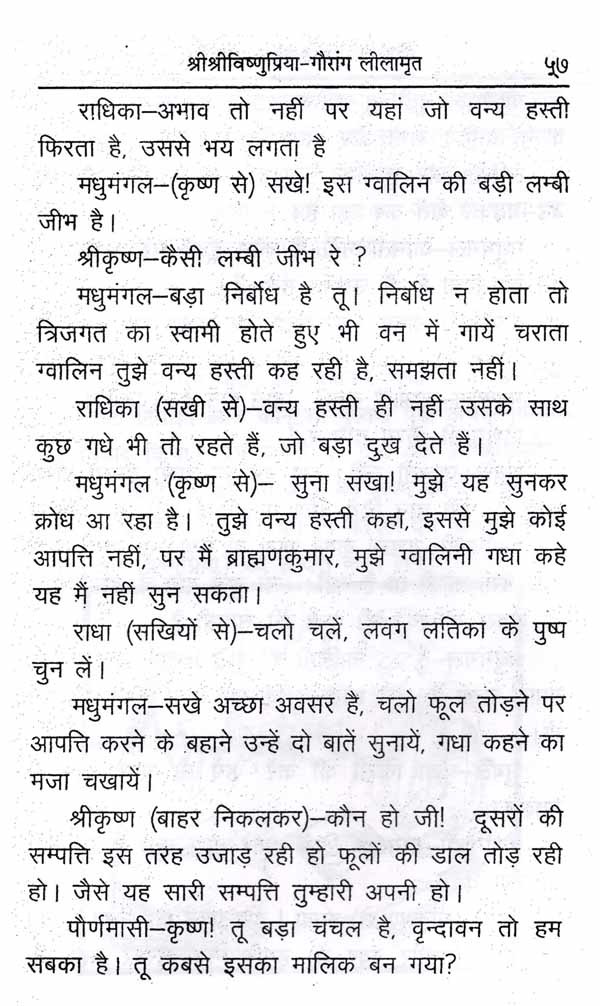 श्रीश्रीविष्णुप्रिया-गौरांग लीलामृत ५७
राधिका–अभाव तो नहीं पर यहां जो वन्य हस्ती
फिरता है, उससे भय लगता है
मधुमंगल–(कृष्ण से) सखे! इस ग्वालिन की बड़ी लम्बी
जीभ है।
श्रीकृष्ण–कैसी लम्बी जीभ रे ?
मधुमंगल–बड़ा निर्बोध है तू। निर्बोध न होता तो
त्रिजगत का स्वामी होते हुए भी वन में गायें चराता
ग्वालिन तुझे वन्य हस्ती कह रही है, समझता नहीं।
राधिका (सखी से)–वन्य हस्ती ही नहीं उसके साथ
कुछ गधे भी तो रहते हैं, जो बड़ा दुख देते हैं।
मधुमंगल (कृष्ण से)– सुना सखा! मुझे यह सुनकर
क्रोध आ रहा है। तुझे वन्य हस्ती कहा, इससे मुझे कोई
आपत्ति नहीं, पर मैं ब्राह्मणकुमार, मुझे ग्वालिनी गधा कहे
यह मैं नहीं सुन सकता।
राधा (सखियों से)–चलो चलें, लवंग लतिका के पुष्प
चुन लें।
मधुमंगल–सखे अच्छा अवसर है, चलो फूल तोड़ने पर
आपत्ति करने के बहाने उन्हें दो बातें सुनायें, गधा कहने का
मजा चखायें।
श्रीकृष्ण (बाहर निकलकर)–कौन हो जी! दूसरों की
सम्पत्ति इस तरह उजाड़ रही हो फूलों की डाल तोड़ रही
हो। जैसे यह सारी सम्पत्ति तुम्हारी अपनी हो।
पौर्णमासी–कृष्ण! तू बड़ा चंचल है, वृन्दावन तो हम
सबका है। तू कबसे इसका मालिक बन गया?